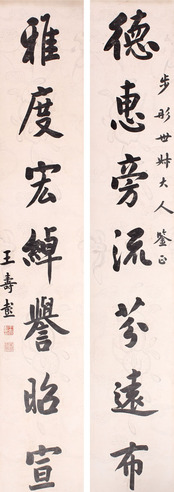 步彤世大人鑒正
德惠旁流芬遠布
雅度宏綽譽昭宣
王壽彭